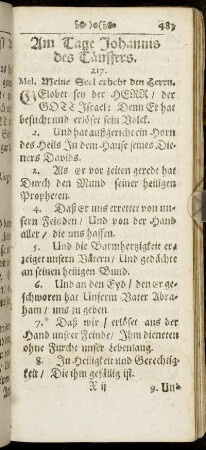 )o(
483
Am Tage Johannis
des Täuffers.
217.
Mel. Meine Seel erhebt den Herrn.
GElobet sey der HERR/ der
GOTT Israel: Denn Er hat
besucht und erlöset sein Volck.
2. Und hat auffgericht ein Horn
des Heils In dem Hause seines Die-
ners Davids.
2. Als er vor zeiten gerede hat
Durch den Mund seiner heiligen
Propheten.
4. Daß Er uns errettet von un-
sern Feinden/ Und von der Hand
aller/ die uns hassen.
5. Und die Barmhertzigkeit er-
zeiget unsern Vätern/ Und gedächte
an seinen heiligen Bund.
6. Und an den Eyd/ den er ge-
schworen hat Unserm Vater Abra-
ham/ uns zu geben.
7. Daß wir/ erlöset aus der
Hand unsrer Feinde/ Ihm dieneten
ohne Furcht unser Lebenlang.
8. In Heiligkeit und Gerechtig-
keit/ Die ihm gefällig ist.
X ij
9. Und